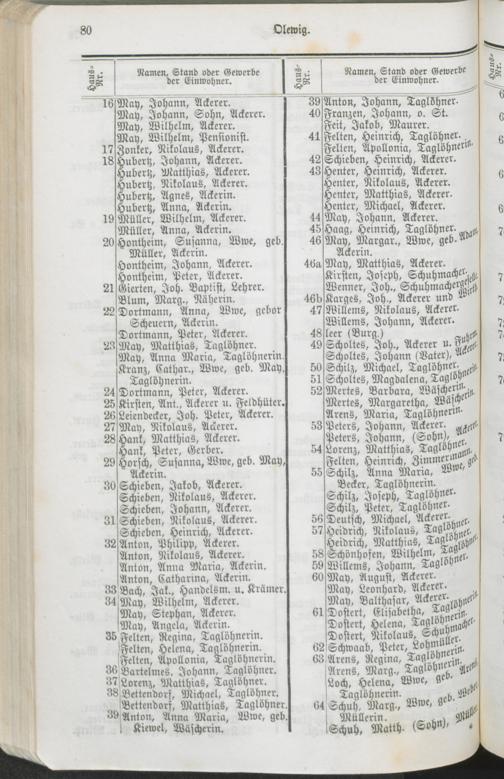 80
Olewig.
Haus-
Nr.
Namen, Stand oder Gewerbe
der Einwohner.
16 May, Johann, Ackerer.
May, Johann, Sohn, Ackerer.
May, Wilhelm, Ackerer.
May, Wilhelm, Pensionist.
17 Zonker, Nikolaus, Ackerer.
18 Hubertz, Johann, Ackerer.
Hubertz, Matthias, Ackerer.
Hubertz, Nikolaus, Ackerer.
Hubertz, Agnes, Ackerin.
Hubertz, Anna, Ackerin.
19 Müller, Wilhelm, Ackerer.
Müller, Anna, Ackerin.
20 Hontheim, Susanna, Wwe, geb.
Müller, Ackerin.
Hontheim, Johann, Ackerer.
Hontheim, Peter, Ackerer.
21 Gierten, Joh. Baptist, Lehrer.
Blum, Marg., Näherin.
22 Dortmann, Anna, Wwe, gebor
Scheuern, Ackerin.
Dortmann, Peter, Ackerer.
23 May, Matthias, Taglöhner.
May, Anna Maria, Taglöhnerin.
Kranz, Cathar., Wwe, geb. May,
Taglöhnerin.
24 Dortmann, Peter, Ackerer.
25 Kirsten, Ant., Ackerer u. Feldhüter.
26 Leiendecker, Joh. Peter, Ackerer.
27 May, Nikolaus, Ackerer.
28 Hank, Matthias, Ackerer.
Hank, Peter, Gerber.
29 Horsch, Susanna, Wwe, geb. May,
Ackerin.
30 Schieben, Jakob, Ackerer.
Schieben, Nikolaus, Ackerer.
Schieben, Johann, Ackerer.
31 Schieben, Nikolaus, Ackerer.
Schieben, Heinrich, Ackerer.
32 Anton, Philipp, Ackerer.
Anton, Nikolaus, Ackerer.
Anton, Anna Maria, Ackerin.
Anton, Catharina, Ackerin.
33 Bach, Jak., Handelsm. u. Krämer.
34 May, Wilhelm, Ackerer.
May, Stephan, Ackerer.
May, Angela, Ackerin.
35 Felten, Regina, Taglöhnerin.
Felten, Helena, Taglöhnerin.
Felten, Apollonia, Taglöhnerin.
36 Bartelmes, Johann, Taglöhner.
37 Lorenz, Matthias, Taglöhner.
38 Bettendorf, Michael, Taglöhner.
Bettendorf, Matthias, Taglöhner.
39 Anton, Anna Maria, Wwe, geb.
Kiewel, Wäscherin.
Haus-
Nr.
Namen, Stand oder Gewerbe
der Einwohner.
39 Anton, Johann, Taglöhner.
40 Franzen, Johann, o. St.
Feit, Jakob, Maurer.
41 Felten, Heinrich, Taglöhner.
Felten, Apollonia, Taglöhnerin.
42 Schieben, Heinrich, Ackerer.
43 Henter, Heinrich, Ackerer.
Henter, Nikolaus, Ackerer.
Henter, Matthias, Ackerer.
Henter, Michael, Ackerer.
44 May, Johann, Ackerer.
45 Haag, Heinrich, Taglöhner.
46 May, Margar., Wwe, geb. Adam,
Ackerin.
46a May, Matthias, Ackerer.
Kirsten, Joseph, Schuhmacher.
Wenner, Joh., Schuhmachergeselle.
46b Karges, Joh., Ackerer und Wirth.
47 Willems, Nikolaus, Ackerer.
Willems, Johann, Ackerer.
48 leer (Burg.)
49 Scholtes, Joh., Ackerer u. Fuhrm.
Scholtes, Johann (Vater), Ackerer.
50 Schilz, Michael, Taglöhner.
51 Scholtes, Magdalena, Taglöhnerin.
52 Mertes, Barbara, Wäscherin.
Mertes, Margaretha, Wäscherin.
Arens, Maria, Taglöhnerin.
53 Peters, Johann, Ackerer.
Peters, Johann, (Sohn), Ackerer.
54 Lorenz, Matthias, Taglöhner.
Felten, Heinrich, Zimmermann.
55 Schilz, Anna Maria, Wwe, geb.
Becker, Taglöhnerin.
Schilz, Joseph, Taglöhner.
Schilz, Peter, Taglöhner.
56 Deutsch, Michael, Ackerer.
57 Heidrich, Nikolaus, Taglöhner.
Heidrich, Matthias, Taglöhner.
58 Schönhofen, Wilhelm, Taglöhner.
59 Willems, Johann, Taglöhner.
60 May, August, Ackerer.
May, Leonhard, Ackerer.
May, Balthasar, Ackerer.
61 Dostert, Elisabetha, Taglöhnerin.
Dostert, Helena, Taglöhnerin.
Dostert, Nikolaus, Schuhmacher.
62 Schwaab, Peter, Lohmüller.
63 Arens, Regina, Taglöhnerin.
Arens, Marg., Taglöhnerin.
Loch, Helena, Wwe, geb. Arens,
Taglöhnerin.
64 Schuh, Marg., Wwe, geb. Weber
Müllerin.
Schuh, Matth. (Sohn), Müller